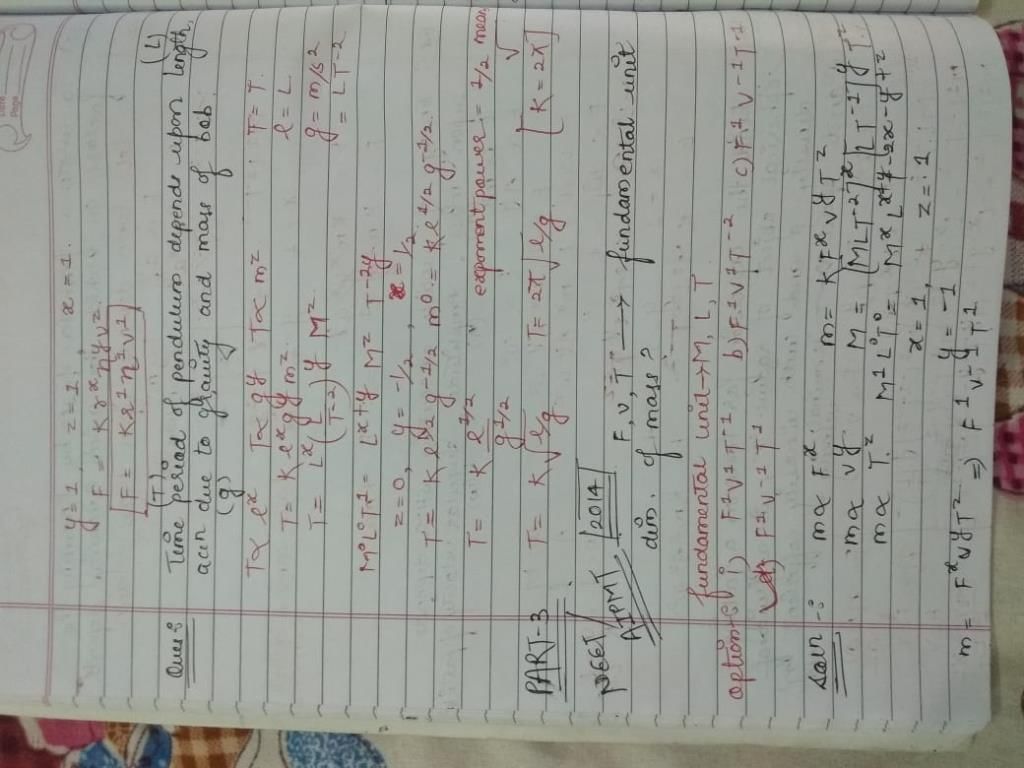 y = 1, z = 1, x = 1.
F = K r^x η^y v^z
[F = K r^1 η^1 v^1]
Ques:- Time period (T) of pendulum depends upon length (L),
accn due to gravity (g) and mass of bob.
T ∝ l^x T ∝ g^y T ∝ m^z T = T.
T = K l^x g^y m^z l = L
T = L^x (L/T^-2)^y M^z g = m/s^2
= LT^-2
M^0 L^0 T^1 = L^x+y M^z T^-2y
z = 0, y = -1/2, x = 1/2
T = K l^1/2 g^-1/2 m^0 = K l^1/2 g^-1/2.
T = K l^1/2 / g^1/2 exponent power = 1/2 mean √
T = K √l/g T = 2π √l/g [K = 2π]
PART-3
AIPMT [2014] F, V, T → fundamental unit
dim. of mass?
fundamental unit → M, L, T
option:- i) F^1 V^1 T^-1 b) F^1 V^1 T^-2 c) F^1 V^-1 T^-1
d) F^1 V^-1 T^1
Soln:- m ∝ F^x m = K F^x V^y T^z
m ∝ V^y M = [MLT^-2]^x [LT^-1]^y T^z
m ∝ T^z M^1 L^0 T^0 = M^x L^x+y T^-2x-y+z
x = 1, z = 1
m = F^x V^y T^z y = -1
⇒ F^1 V^-1 T^1